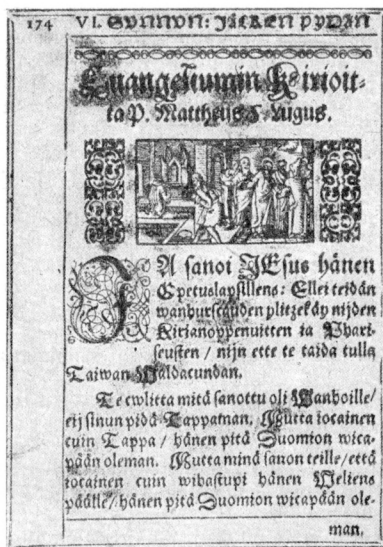 174 VI. SUNNUN: JÄLKEN PYHÄN
Euangeliumin Kirioit-
ta P. Mattheus 5. Lugus.
JA sanoi JEsus hänen
Opetuslapsillens: Ellei teidän
wanhurscauden ylitzekäy nijden
Kirjanoppenuitten ia Phari-
seusten / nijn ette te taida tulla
Taiwan Waldacundan.
Te cwlitta mitä sanottu oli Wanhoille /
eij sinun pidä Tappaman. Mutta iocainen
cuin Tappa / hänen pitä Duomion wica-
pään oleman. Mutta minä sanon teille / että
iocainen cuin wihastupi hänen Weliens
päälle / hänen pitä Duomion wicapään ole-
man.